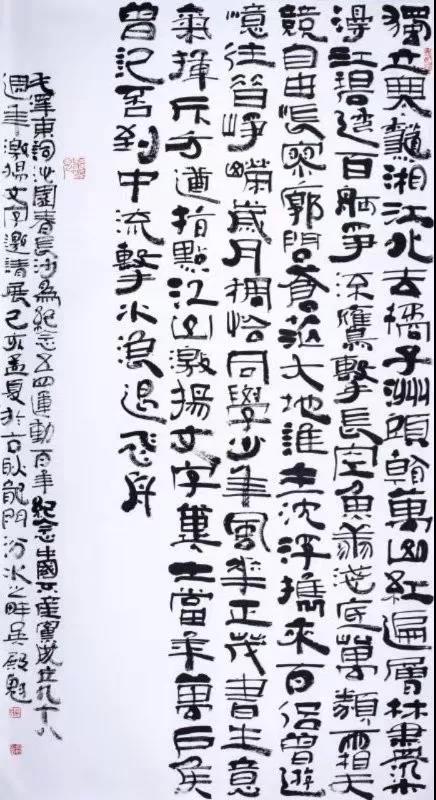 獨立寒龝湘江北去橘子洲頭看萬山紅遍層林盡染
漫江碧透百舸爭流鷹擊長空魚翔淺底萬類霜天
競自由悵寥廓問蒼茫大地誰主沈浮攜來百侶曾遊
憶往昔崢嶸歲月稠恰同學少年風華正茂書生意
氣揮斥方遒指點江山激揚文字糞土當年萬戶侯
曾記否到中流擊水浪遏飛舟
毛澤東詞沁園春長沙為紀念五四運動百年紀念中國共產黨成立九十八
週年激揚文字邀請展己亥孟夏於古耿龍門汾水之畔吳殿魁